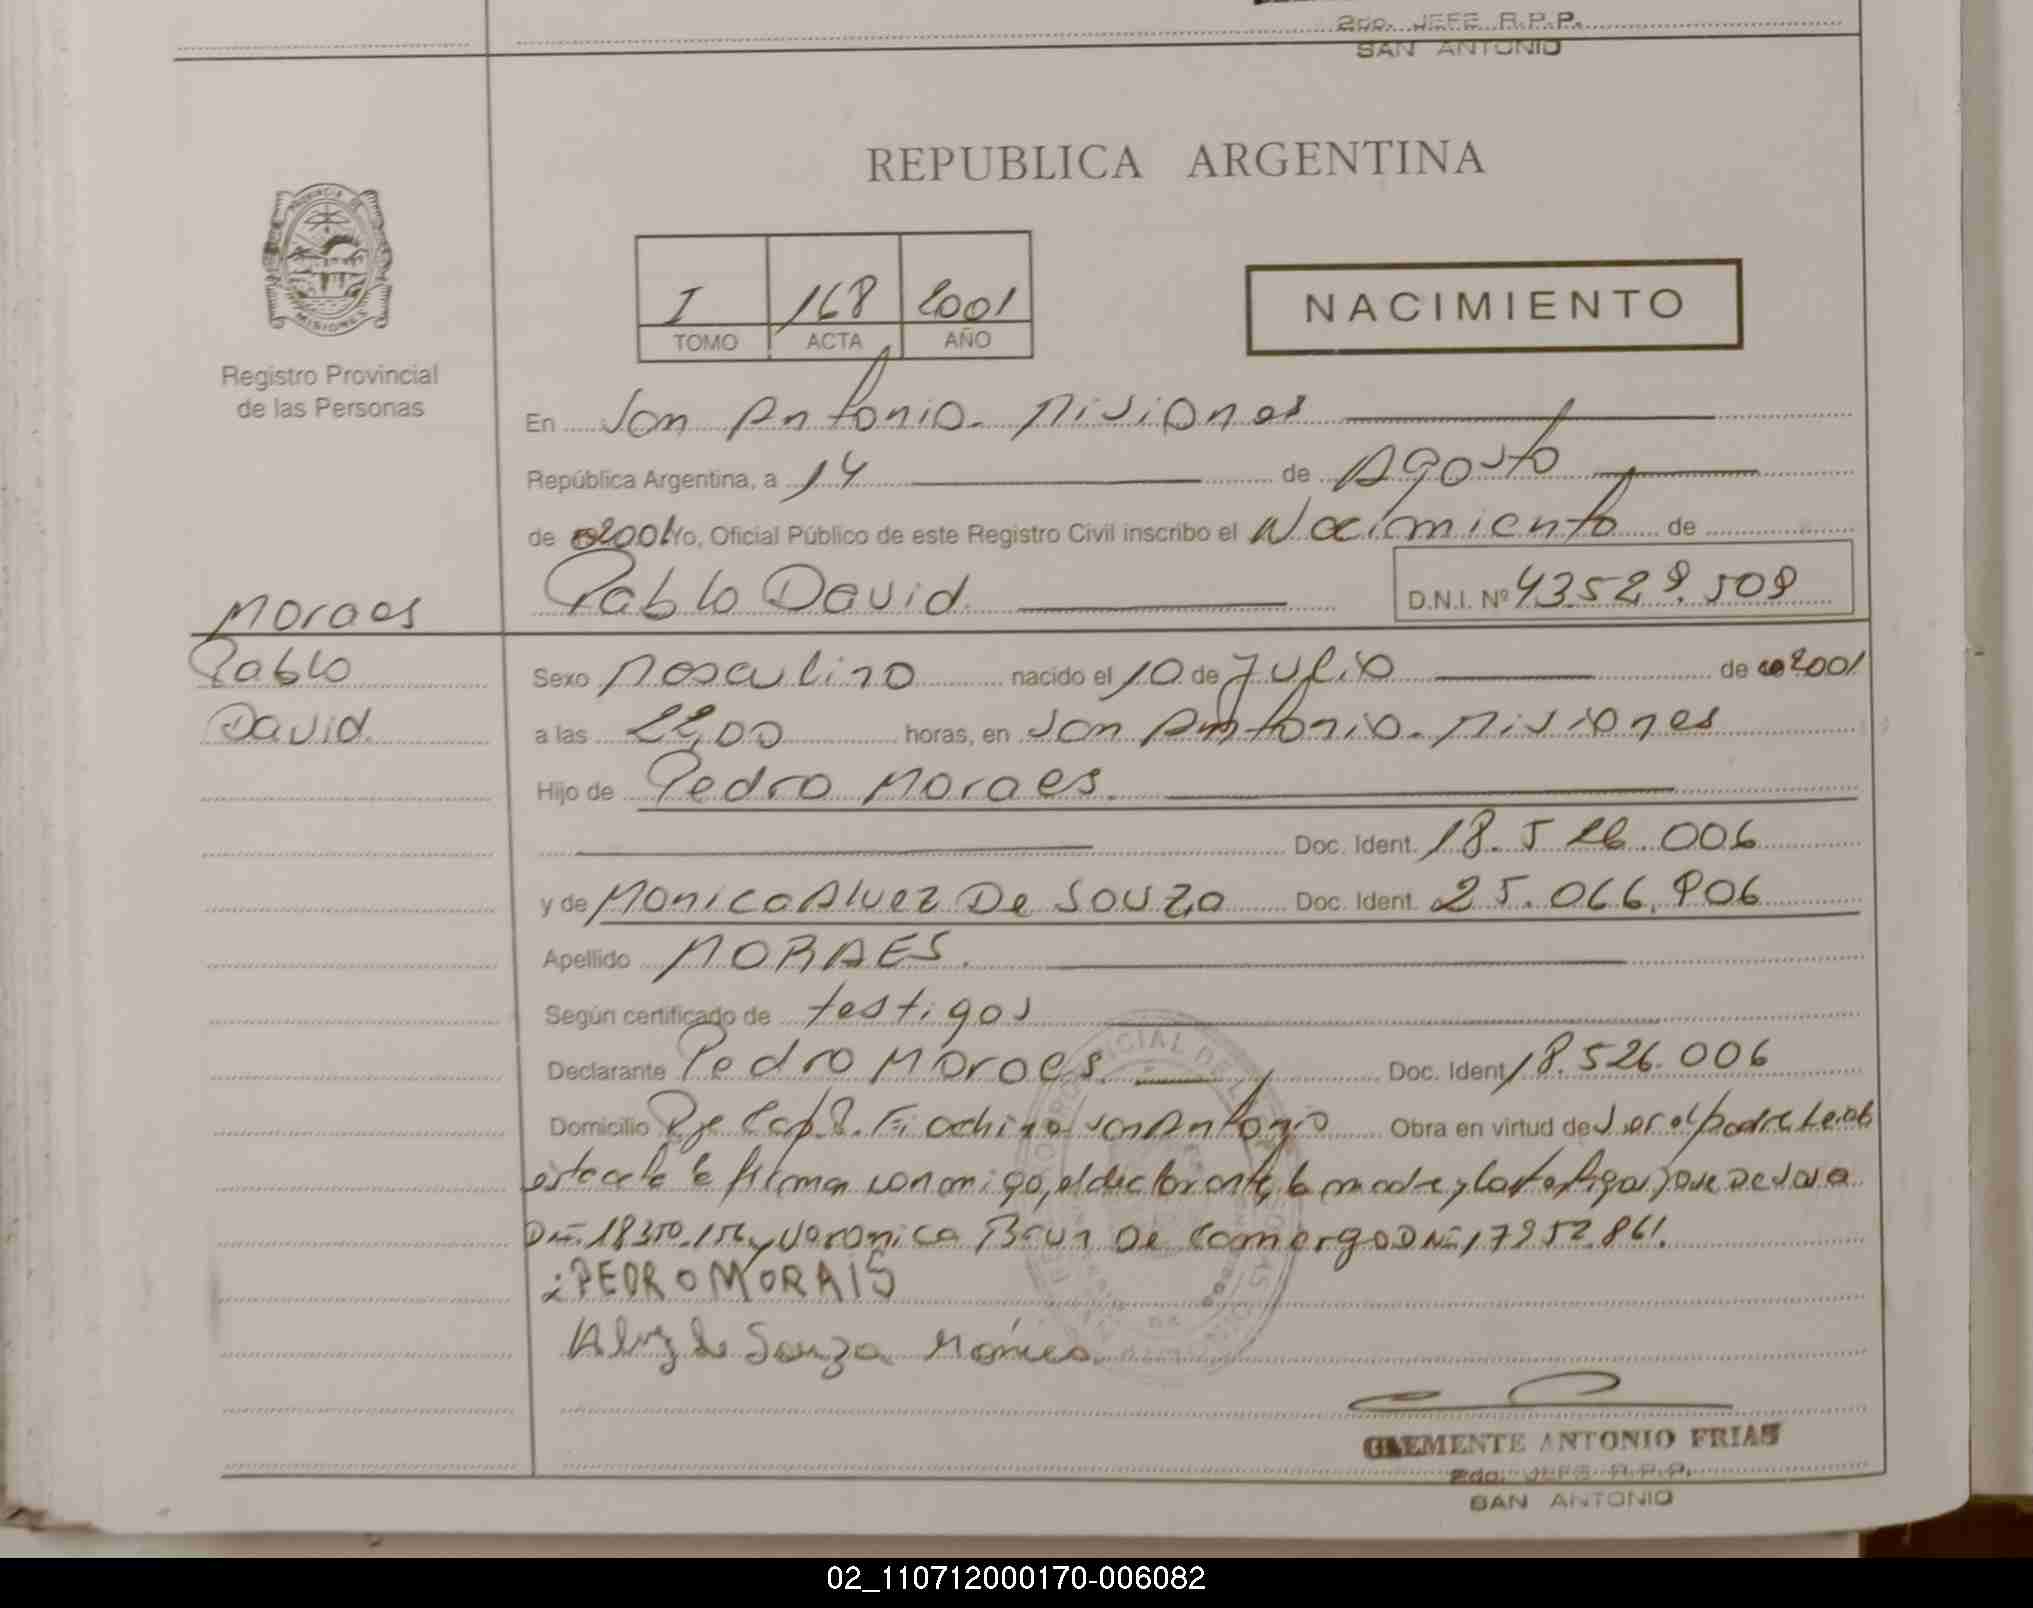 2do. JEFE R.P.P.
SAN ANTONIO
REPUBLICA ARGENTINA
PROVINCIA DE
MISIONES
I 168 2001
TOMO ACTA AÑO
NACIMIENTO
Registro Provincial
de las Personas
En San Antonio - Misiones
República Argentina, a 14 de Agosto
de 2001 Yo, Oficial Público de este Registro Civil inscribo el Nacimiento de
Pablo David D.N.I. Nº 43.528.508
Moraes
Pablo
David
Sexo Masculino nacido el 10 de Julio de 2001
a las 22,00 horas, en San Antonio - Misiones
Hijo de Pedro Moraes.
Doc. Ident. 18.526.006
y de Monica Alvez De Souza Doc. Ident. 25.066.906
Apellido MORAES.
Según certificado de testigos
Declarante Pedro Moraes. Doc. Ident. 18.526.006
Domicilio Pje Cap. Fiochino San Antonio Obra en virtud de ser el padre Leida
esta acta la firman conmigo, el declarante, la madre y los testigos Jose De
DNI. 18350.156 y Veronica Brun De Camergo DNI 17952.861.
: PEDRO MORAIS
Alvez de Souza Mónica
CLEMENTE ANTONIO FRIAS
2do. JEFE R.P.P.
SAN ANTONIO
02_110712000170-006082